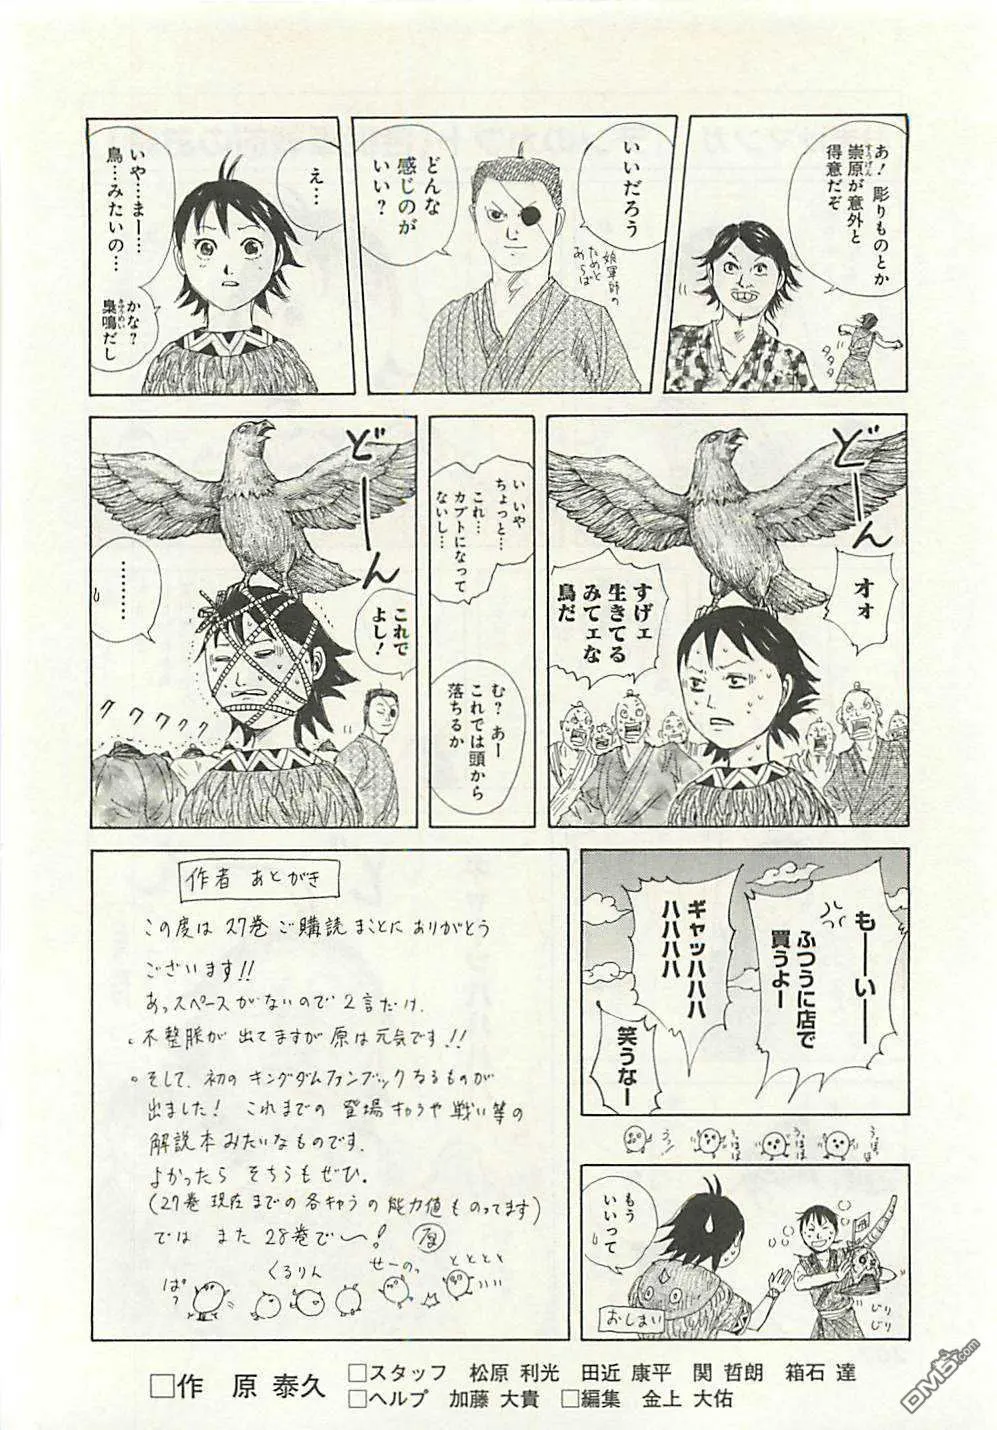 あ!彫りものとか
崇原が意外と
得意だぞ
すうげん
タタタ
いいだろう
娘軍師の
ためと
あらば
どんな
感じのが
いい?
え…
いや…まー…
鳥…みたいの…
かな?
梟鳴だし
きょうめい
どーん
オォ
すげェ
生きてる
みてェな
鳥だ
い いや
ちょっと…
これ…
カブトになって
ないし…
む? あー
これでは頭から
落ちるか
どーん
これで
よし!
………
クククククク
もーいー
ふつうに店で
買うよー
ギャッハハハ
ハハハハ
笑うなー
もう
いいって
じり
じり
おしまい
作者 あとがき
この度は27巻ご購読まことにありがとう
ございます!!
あっスペースがないので2言だけ.
。不整脈が出てますが原は元気です!!
。そして、初のキングダムファンブックなるものが
出ました! これまでの登場キャラや戦い等の
解説本みたいなものです.
よかったら そちらもぜひ.
(27巻現在までの各キャラの能力値ものってます)
では また 28巻で〜! 原
ぱっ
くるりん
せーのっ
トトトト
□作 原 泰久
□スタッフ 松原 利光 田近 康平 関 哲朗 箱石 達
□ヘルプ 加藤 大貴 □編集 金上 大佑
DM5.com